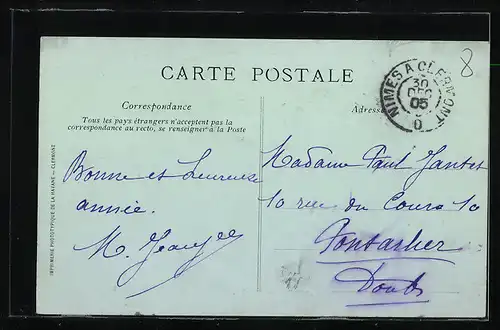 8
CARTE POSTALE
NIMES A CLERMONT
30
DEC
05
D
Correspondance
Adresse
Tous les pays étrangers n'acceptent pas la
correspondance au recto, se renseigner à la Poste
Bonne et heureuse
année.
M.
Madame Paul
10 rue du Cours 10
Pontarlier
Doubs
IMPRIMERIE PHOTOTYPIQUE DE LA HAVANE — CLERMONT